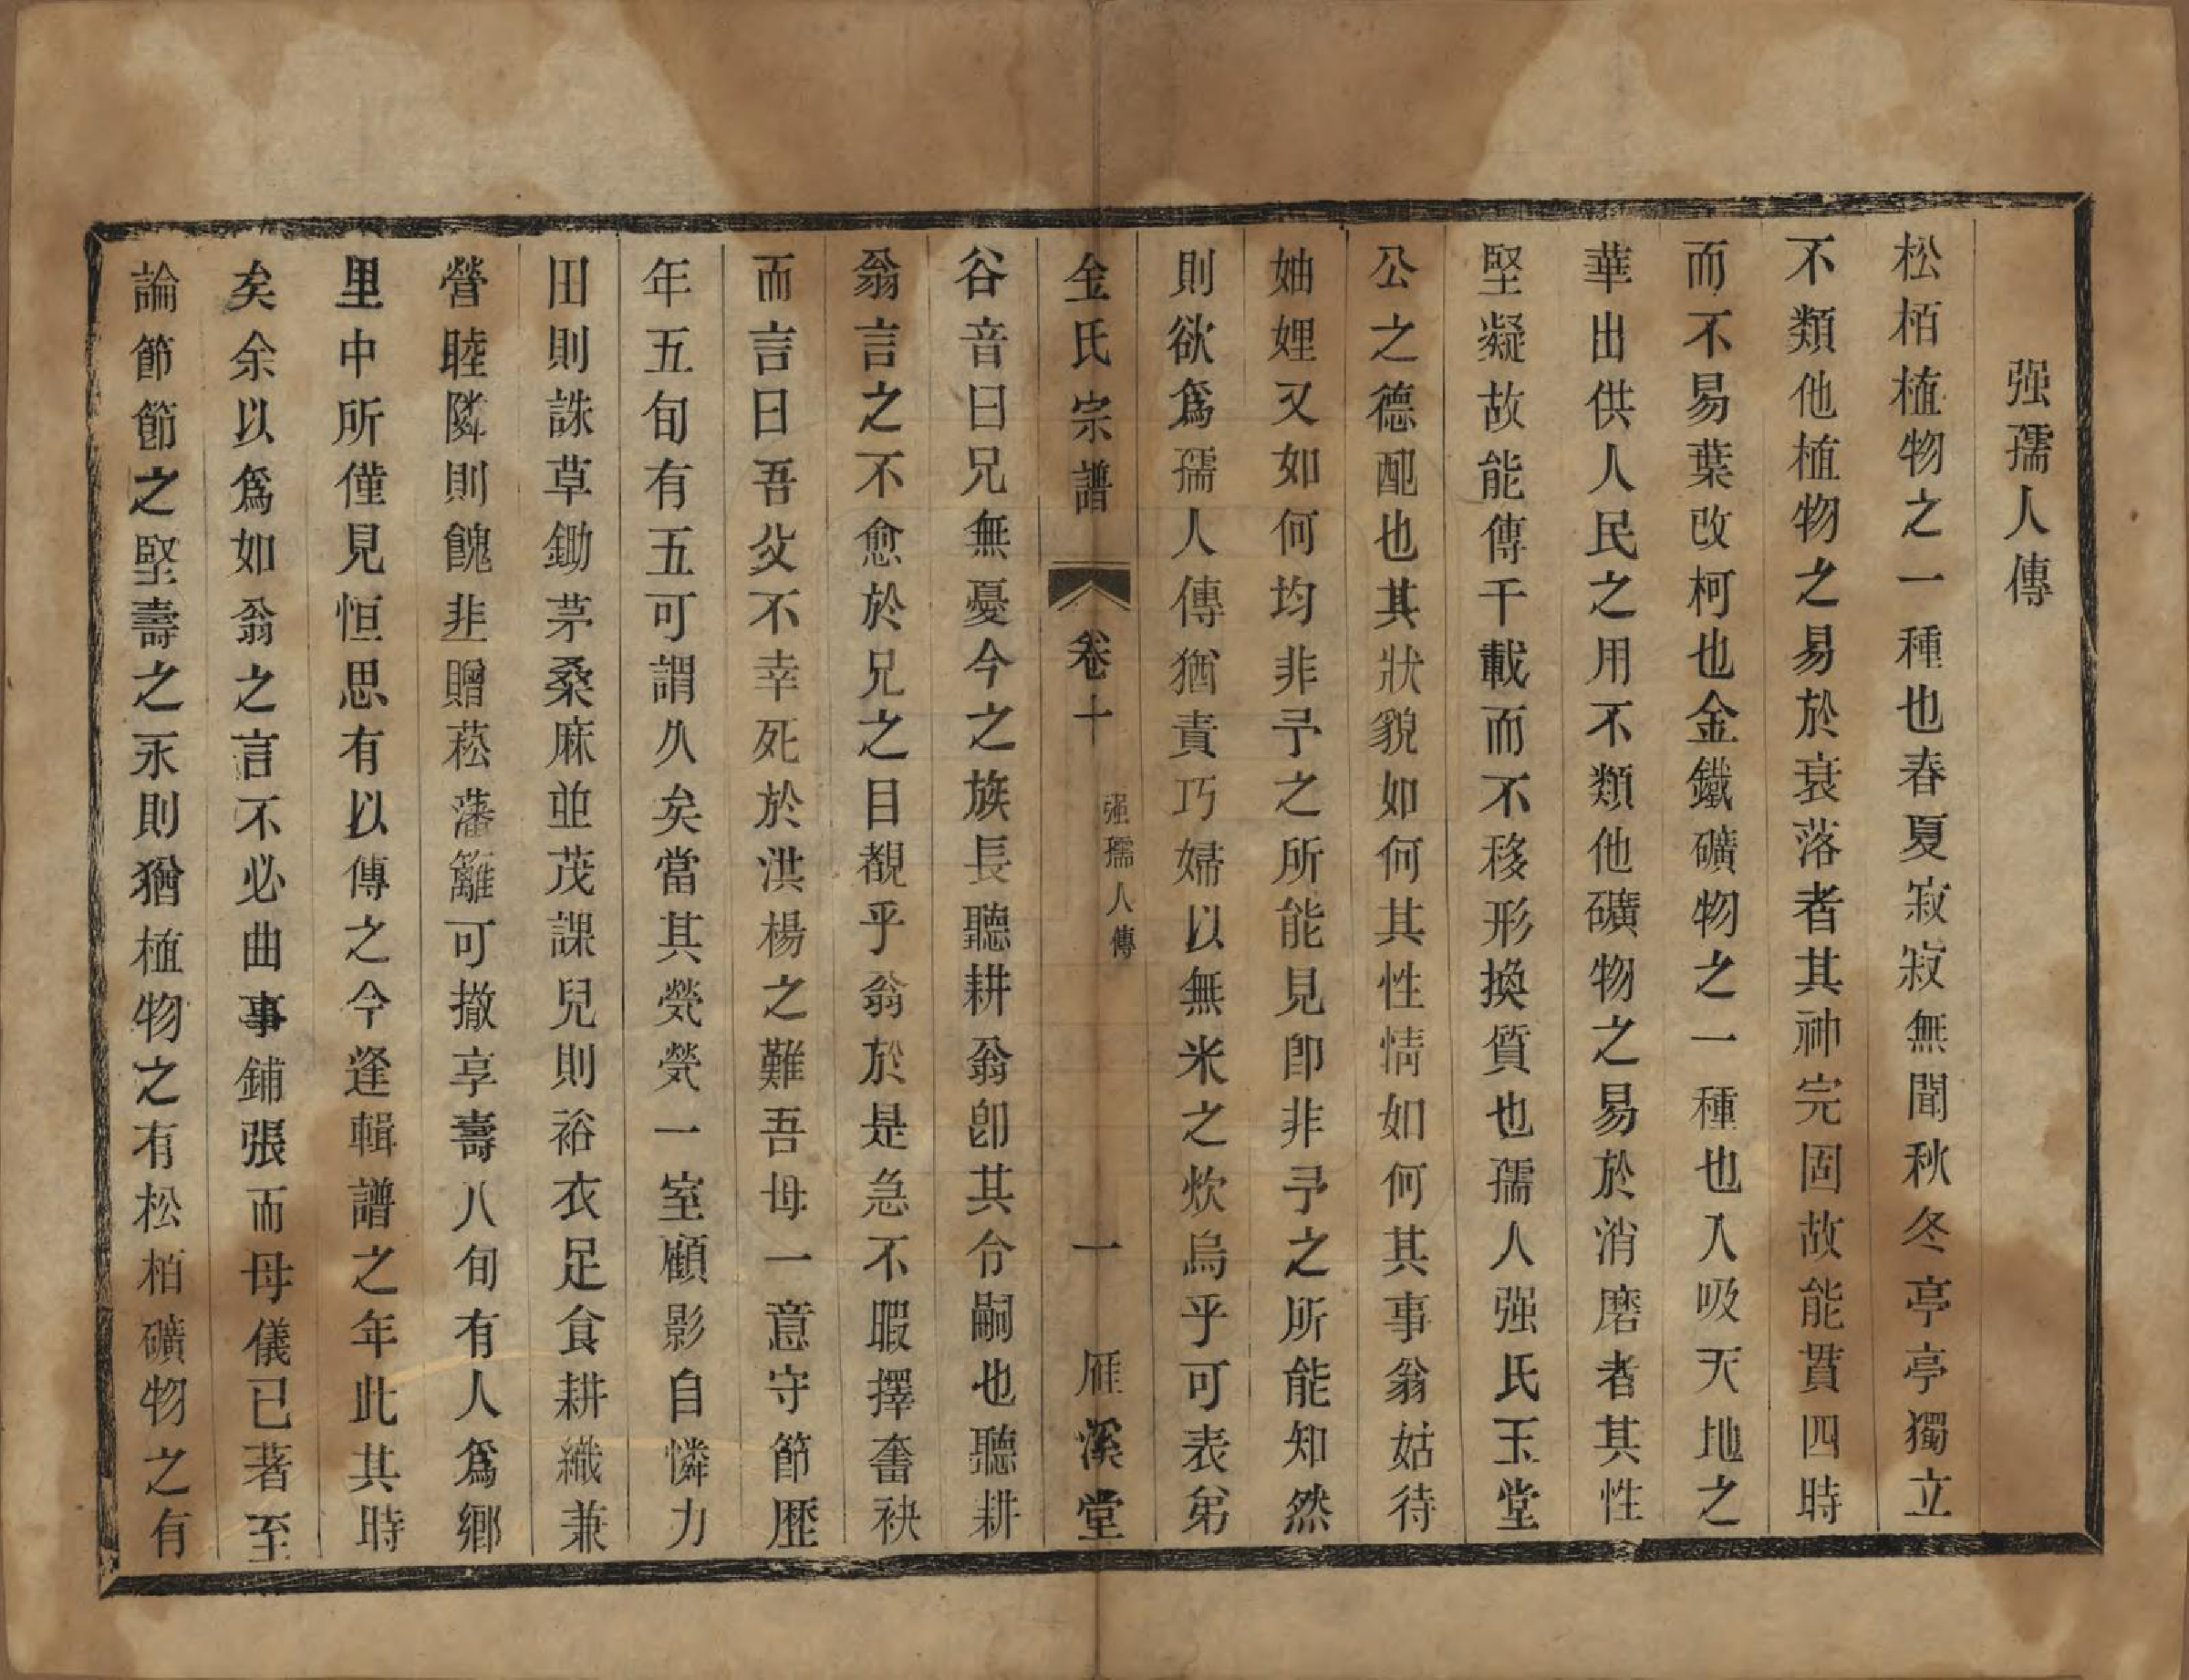 强孺人傳
松栢植物之一種也春夏寂寂無聞秋冬亭亭獨立
不類他植物之易於衰落者其神完固故能貫四時
而不易葉改柯也金鐵礦物之一種也入吸天地之
華出供人民之用不類他礦物之易於消磨者其性
堅凝故能傳千載而不移形換質也孺人强氏玉堂
公之德配也其狀貌如何其性情如何其事翁姑待
妯娌又如何均非予之所能見卽非予之所能知然
則欲爲孺人傳猶責巧婦以無米之炊烏乎可表弟
金氏宗譜 卷十 强孺人傳 一 雁溪堂
谷音曰兄無憂今之族長聽耕翁卽其令嗣也聽耕
翁言之不愈於兄之目覩乎翁於是急不暇擇奮袂
而言曰吾父不幸死於洪楊之難吾母一意守節歷
年五旬有五可謂久矣當其煢煢一室顧影自憐力
田則誅草鋤茅桑麻並茂課兒則裕衣足食耕織兼
營睦隣則餽韭贈菘藩籬可撤享壽八旬有人爲鄉
里中所僅見恒思有以傳之今逢輯譜之年此其時
矣余以爲如翁之言不必曲事鋪張而母儀已著至
論節節之堅壽之永則猶植物之有松柏礦物之有